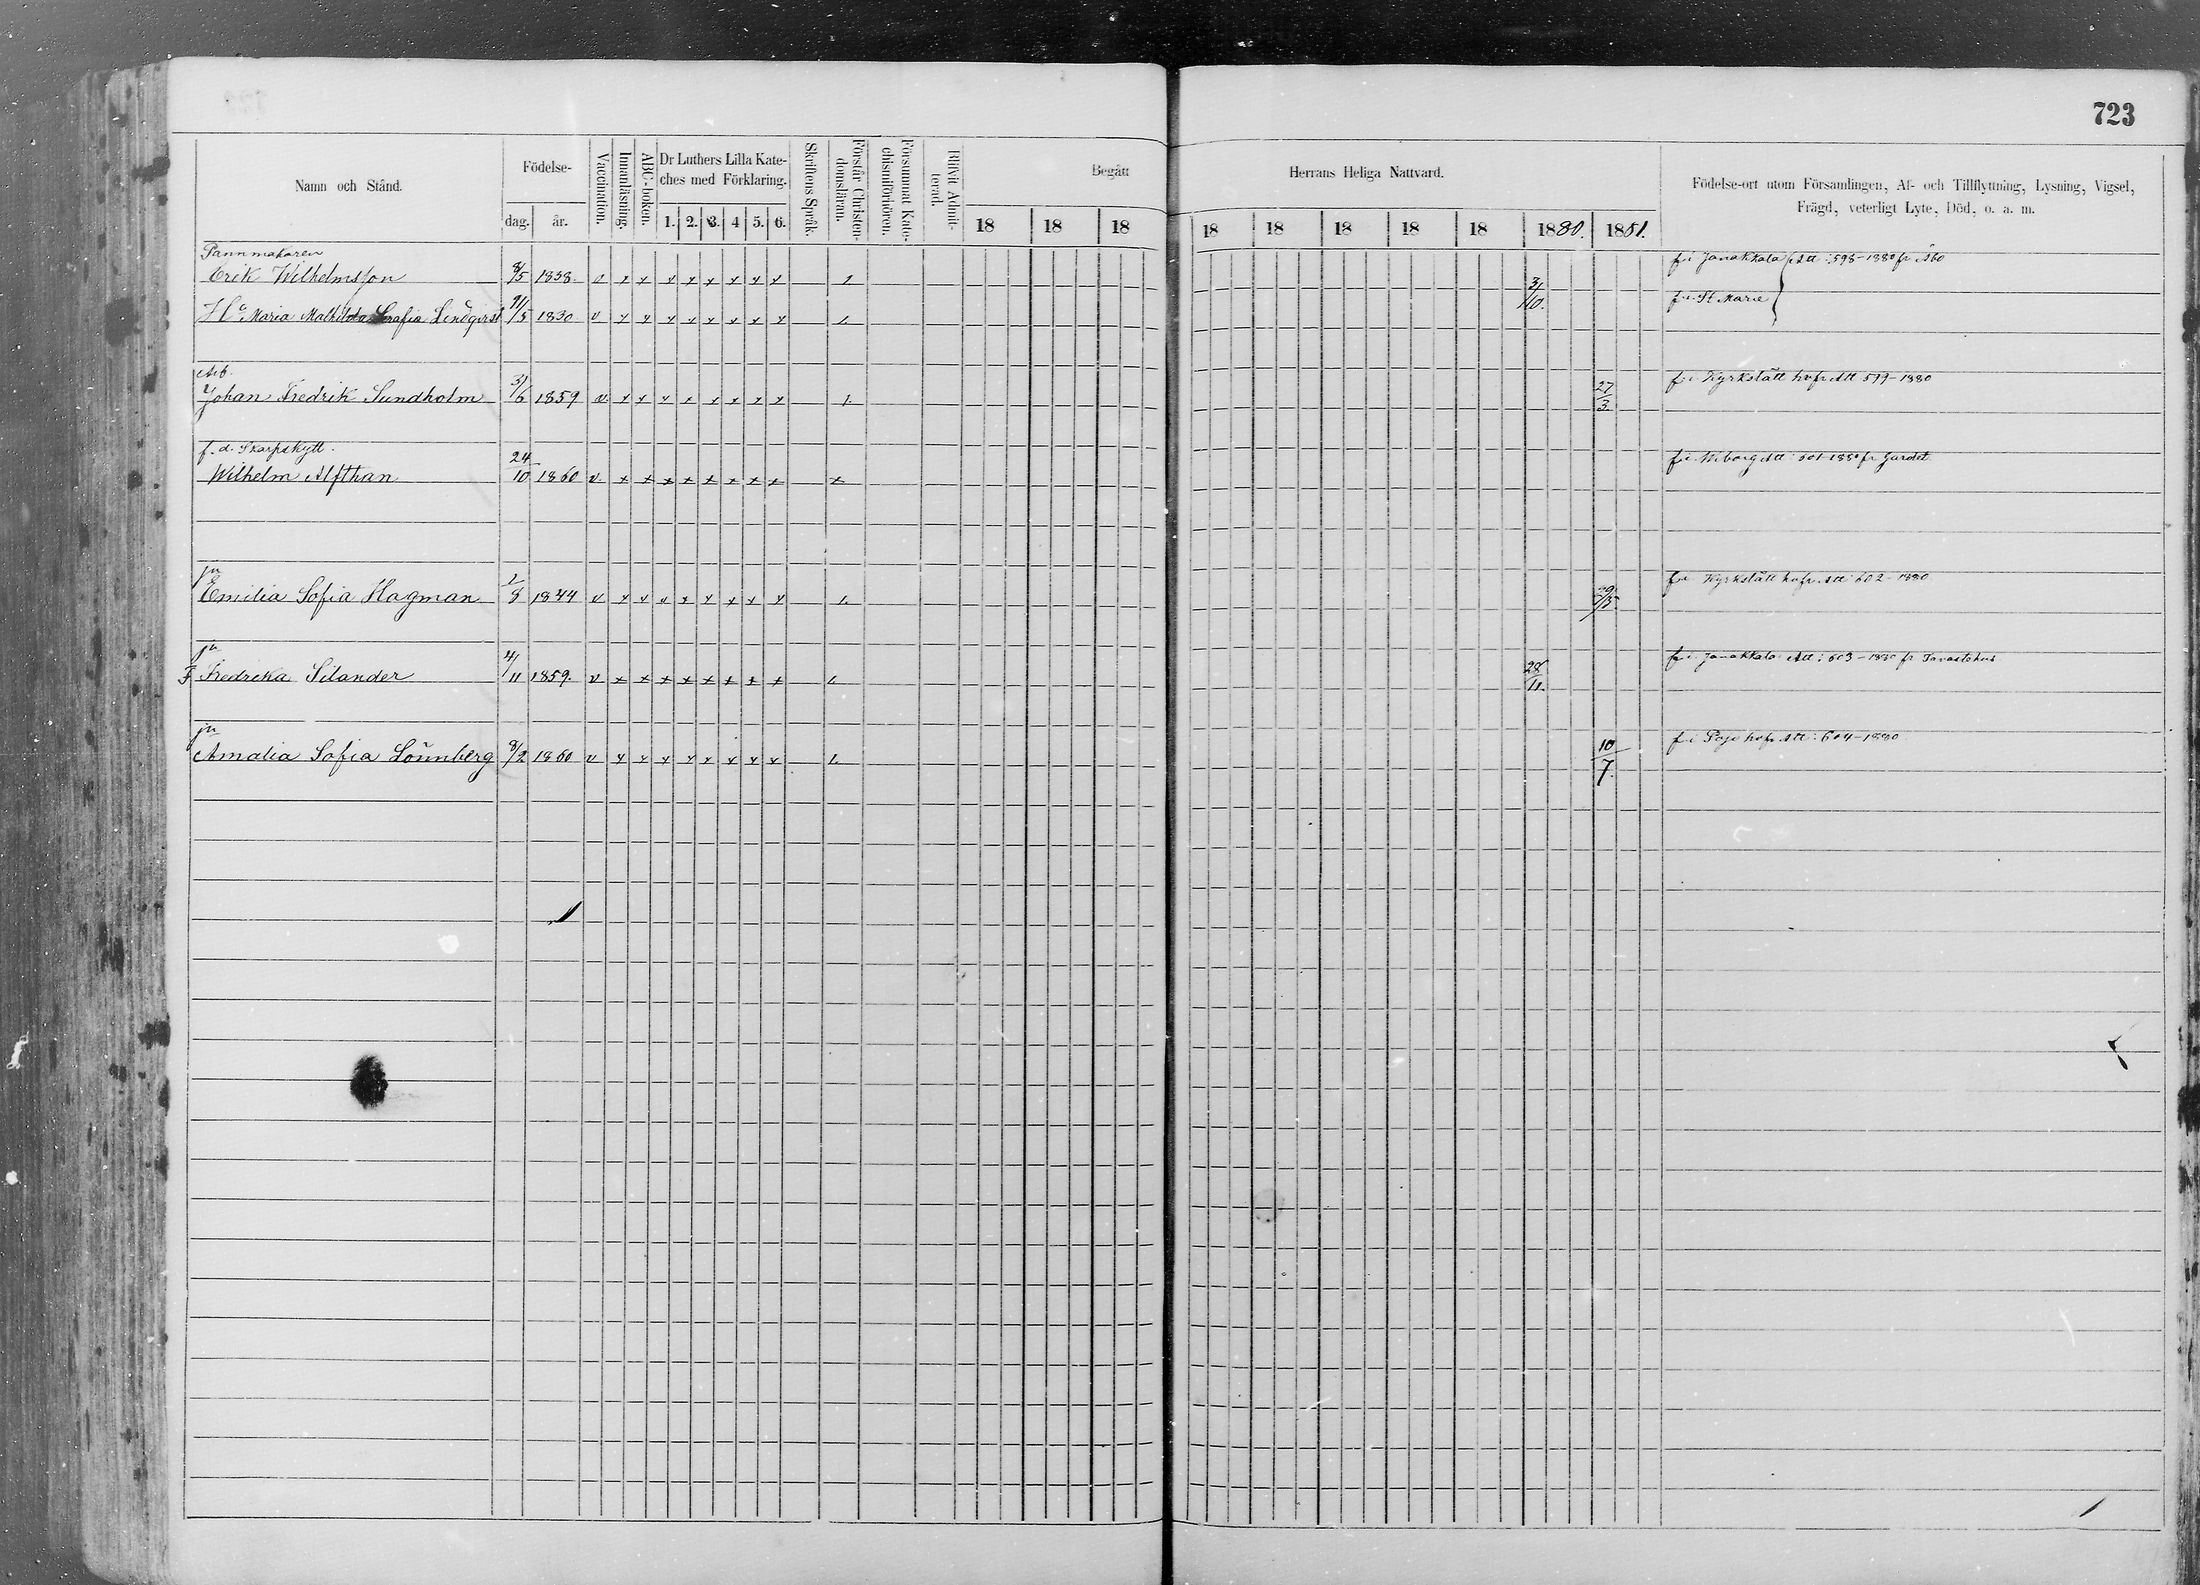 723
Namn och Stånd.
Födelse-
dag. år.
Vaccination.
Innanläsning.
ABC-boken.
Dr Luthers Lilla Kate-
ches med Förklaring.
1. 2. 3. 4 5. 6.
Skriftens Språk.
Förstår Christen-
domsläran.
Försummat Kate-
chismiförhören.
Blifvit Admit-
terad.
Begått Herrans Heliga Nattvard.
18 18 18 18 18 18 18 18 1880. 1881.
Födelse-ort utom Församlingen, Af- och Tillflyttning, Lysning, Vigsel,
Frägd, veterligt Lyte, Död, o. a. m.
Pannmakaren
Erik Wilhelmsson 8/5 1838. v x x x x x x x x 1. 3/10. f. i Janakkala Att: 598-1880 fr Åbo
Hu Maria Mathilda Serafia Lindqvist 11/5 1830 v x x x x x x x x 1. f. i St Marie
Arb.
Johan Fredrik Sundholm 3/6 1859 v x x x x x x x x 1. 27/3. f. i Kyrkslätt hofr Att 599-1880
f. d. Skarpskytt.
Wilhelm Alfthan 24/10 1860 v. x x x x x x x x x f. i Wiborg Att: 601-1880 fr Gardet
pn
Emilia Sofia Hagman 1/8 1844 v x x x x x x x x 1. f. i Kyrkslätt hofr. Att: 602-1880
pn
F Fredrika Silander 4/11 1859. v x x x x x x x x 1. 28/11. f. i Janakkala Att: 603-1880 fr Tavastehus
pn
Amalia Sofia Lönnberg 8/2 1860 v x x x x x x x x 1. 10/7. f. i Pojo hofr Att: 604-1880